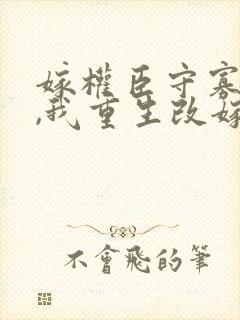 嫁權臣守寡
,我重生改嫁
不會飛的筆